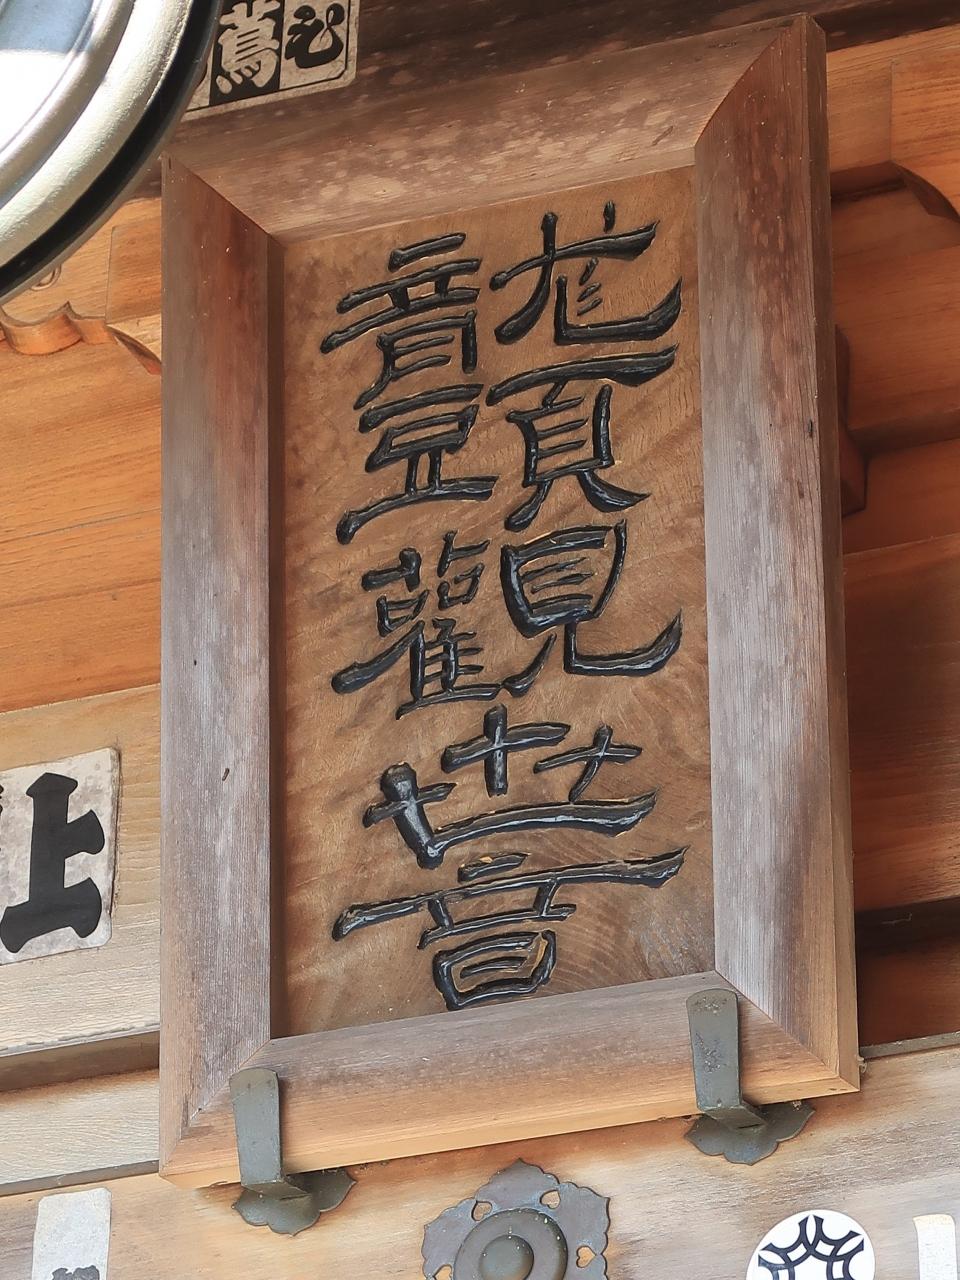 龍頭觀世音
蔦
上